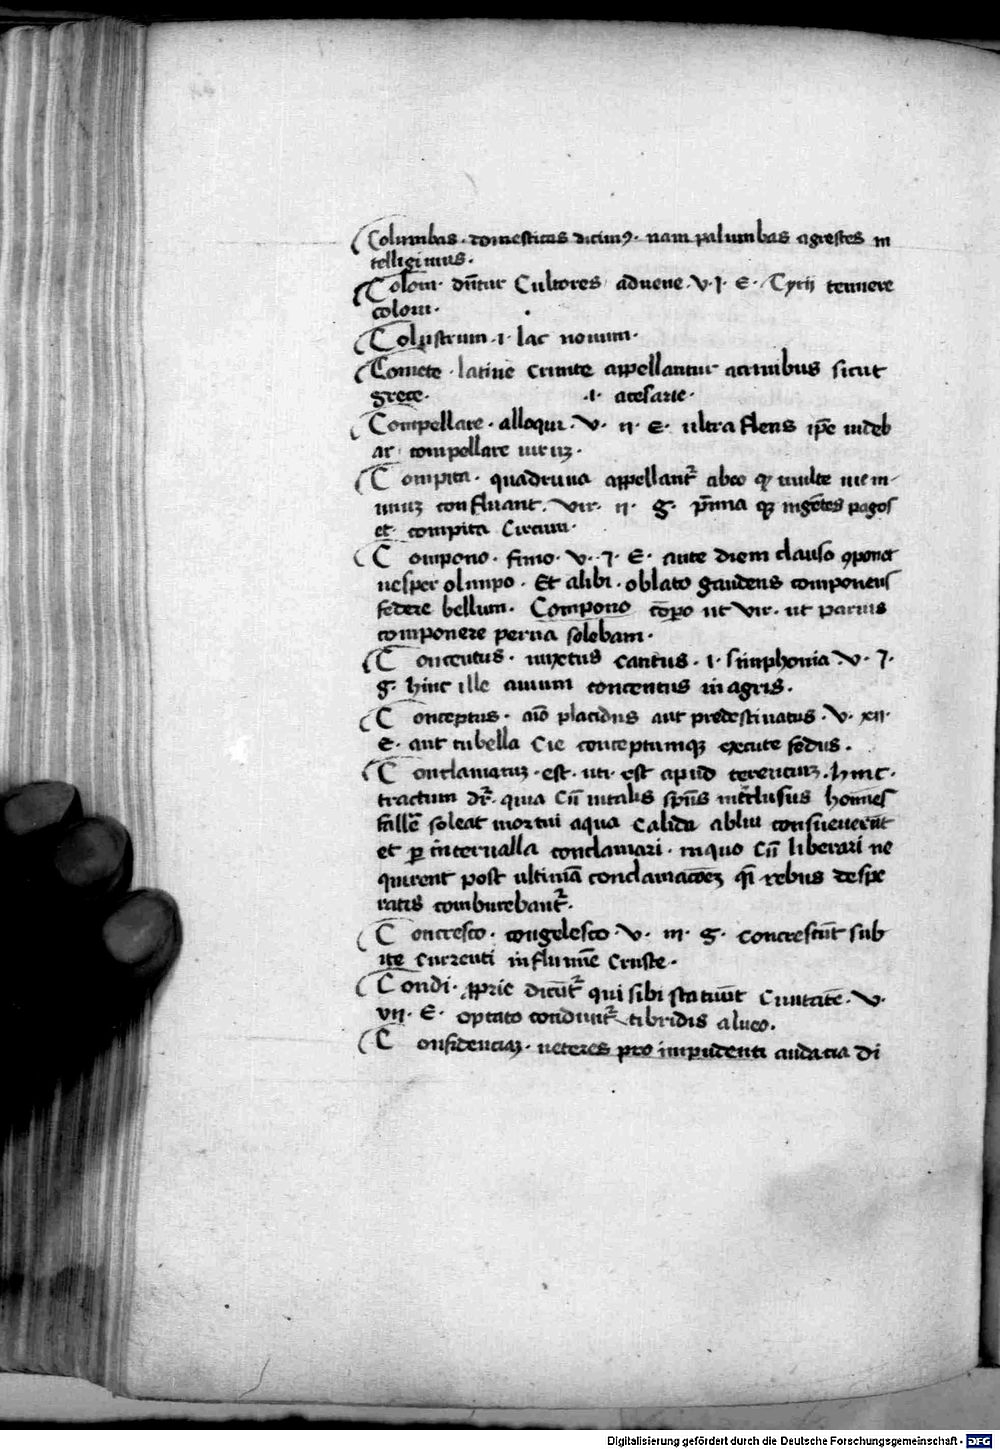 Columbas · domesticas dicimꝰ · nam palumbas agrestes in
telligimus ·
Coloni · dn̄tur Cultores advene · v · J · E · Tyrii tenuere
coloni ·
Colustrum · i · lac novum ·
Comete · latine crinite appellantur a crinibus sicut
grece · · i · a cesarie ·
Compellare · alloqui · v · ii · E · ultra flens ip̄e videb
ar compellare viruꝫ ·
Compita · quadruvia appellant᷑ ab eo ꝙ multe vie in
unuꝫ confluant · vir · ii · g · p̄mia ꝙ ingētes pagos
et compita circum ·
Compono · finio · v · J · E · ante diem clauso ꝯponet
vesper olimpo · Et alibi · oblato gaudens componens
federe bellum · Compono cōpo ut vir · ut parvis
componere perva solebam ·
Concentus · mixtus cantus · i · simphonia v · J ·
g · hinc ille avium concentus in agris ·
Conceptus · aīo placidus aut predestinatus · v · xii ·
E · aut tubella Cie conceptumqꝫ excute fedus ·
Conclamatuꝫ · est · uti · est apud terenciuꝫ · hinc ·
tractum dr̄ · quia Cū vitalis sp̄us inclusus hoīnes
fallē soleat mortui aqua Calida ablui consueverūt
et ꝑ intervalla conclamari · in quo Cū liberari ne
quirent post ultimā conclamacōeꝫ qi rebus despe
ratis comburebant᷑ ·
Concresco · congelesco · v · iii · g · concrescūt sub
ite currenti in flumīe Cruste ·
Condi · ꝓprie dicūt᷑ qui sibi statuūt Civitatē · v ·
vii · E · optato condunt᷑ tibridis alveo ·
Confidenciaꝫ · veteres pro impudenti audacia di
Digitalisierung gefördert durch die Deutsche Forschungsgemeinschaft - DFG